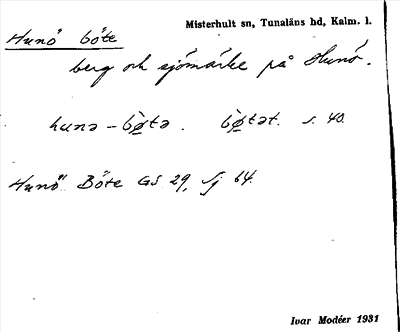 Misterhult sn, Tunaläns hd, Kalm. l.
Hunö böte
berg och sjömärke på Hunö.
hunə – bø̀tə . bø̀tət. s. 40.
Hunö Böte GS 29, Sj 64.
Ivar Modéer 1931